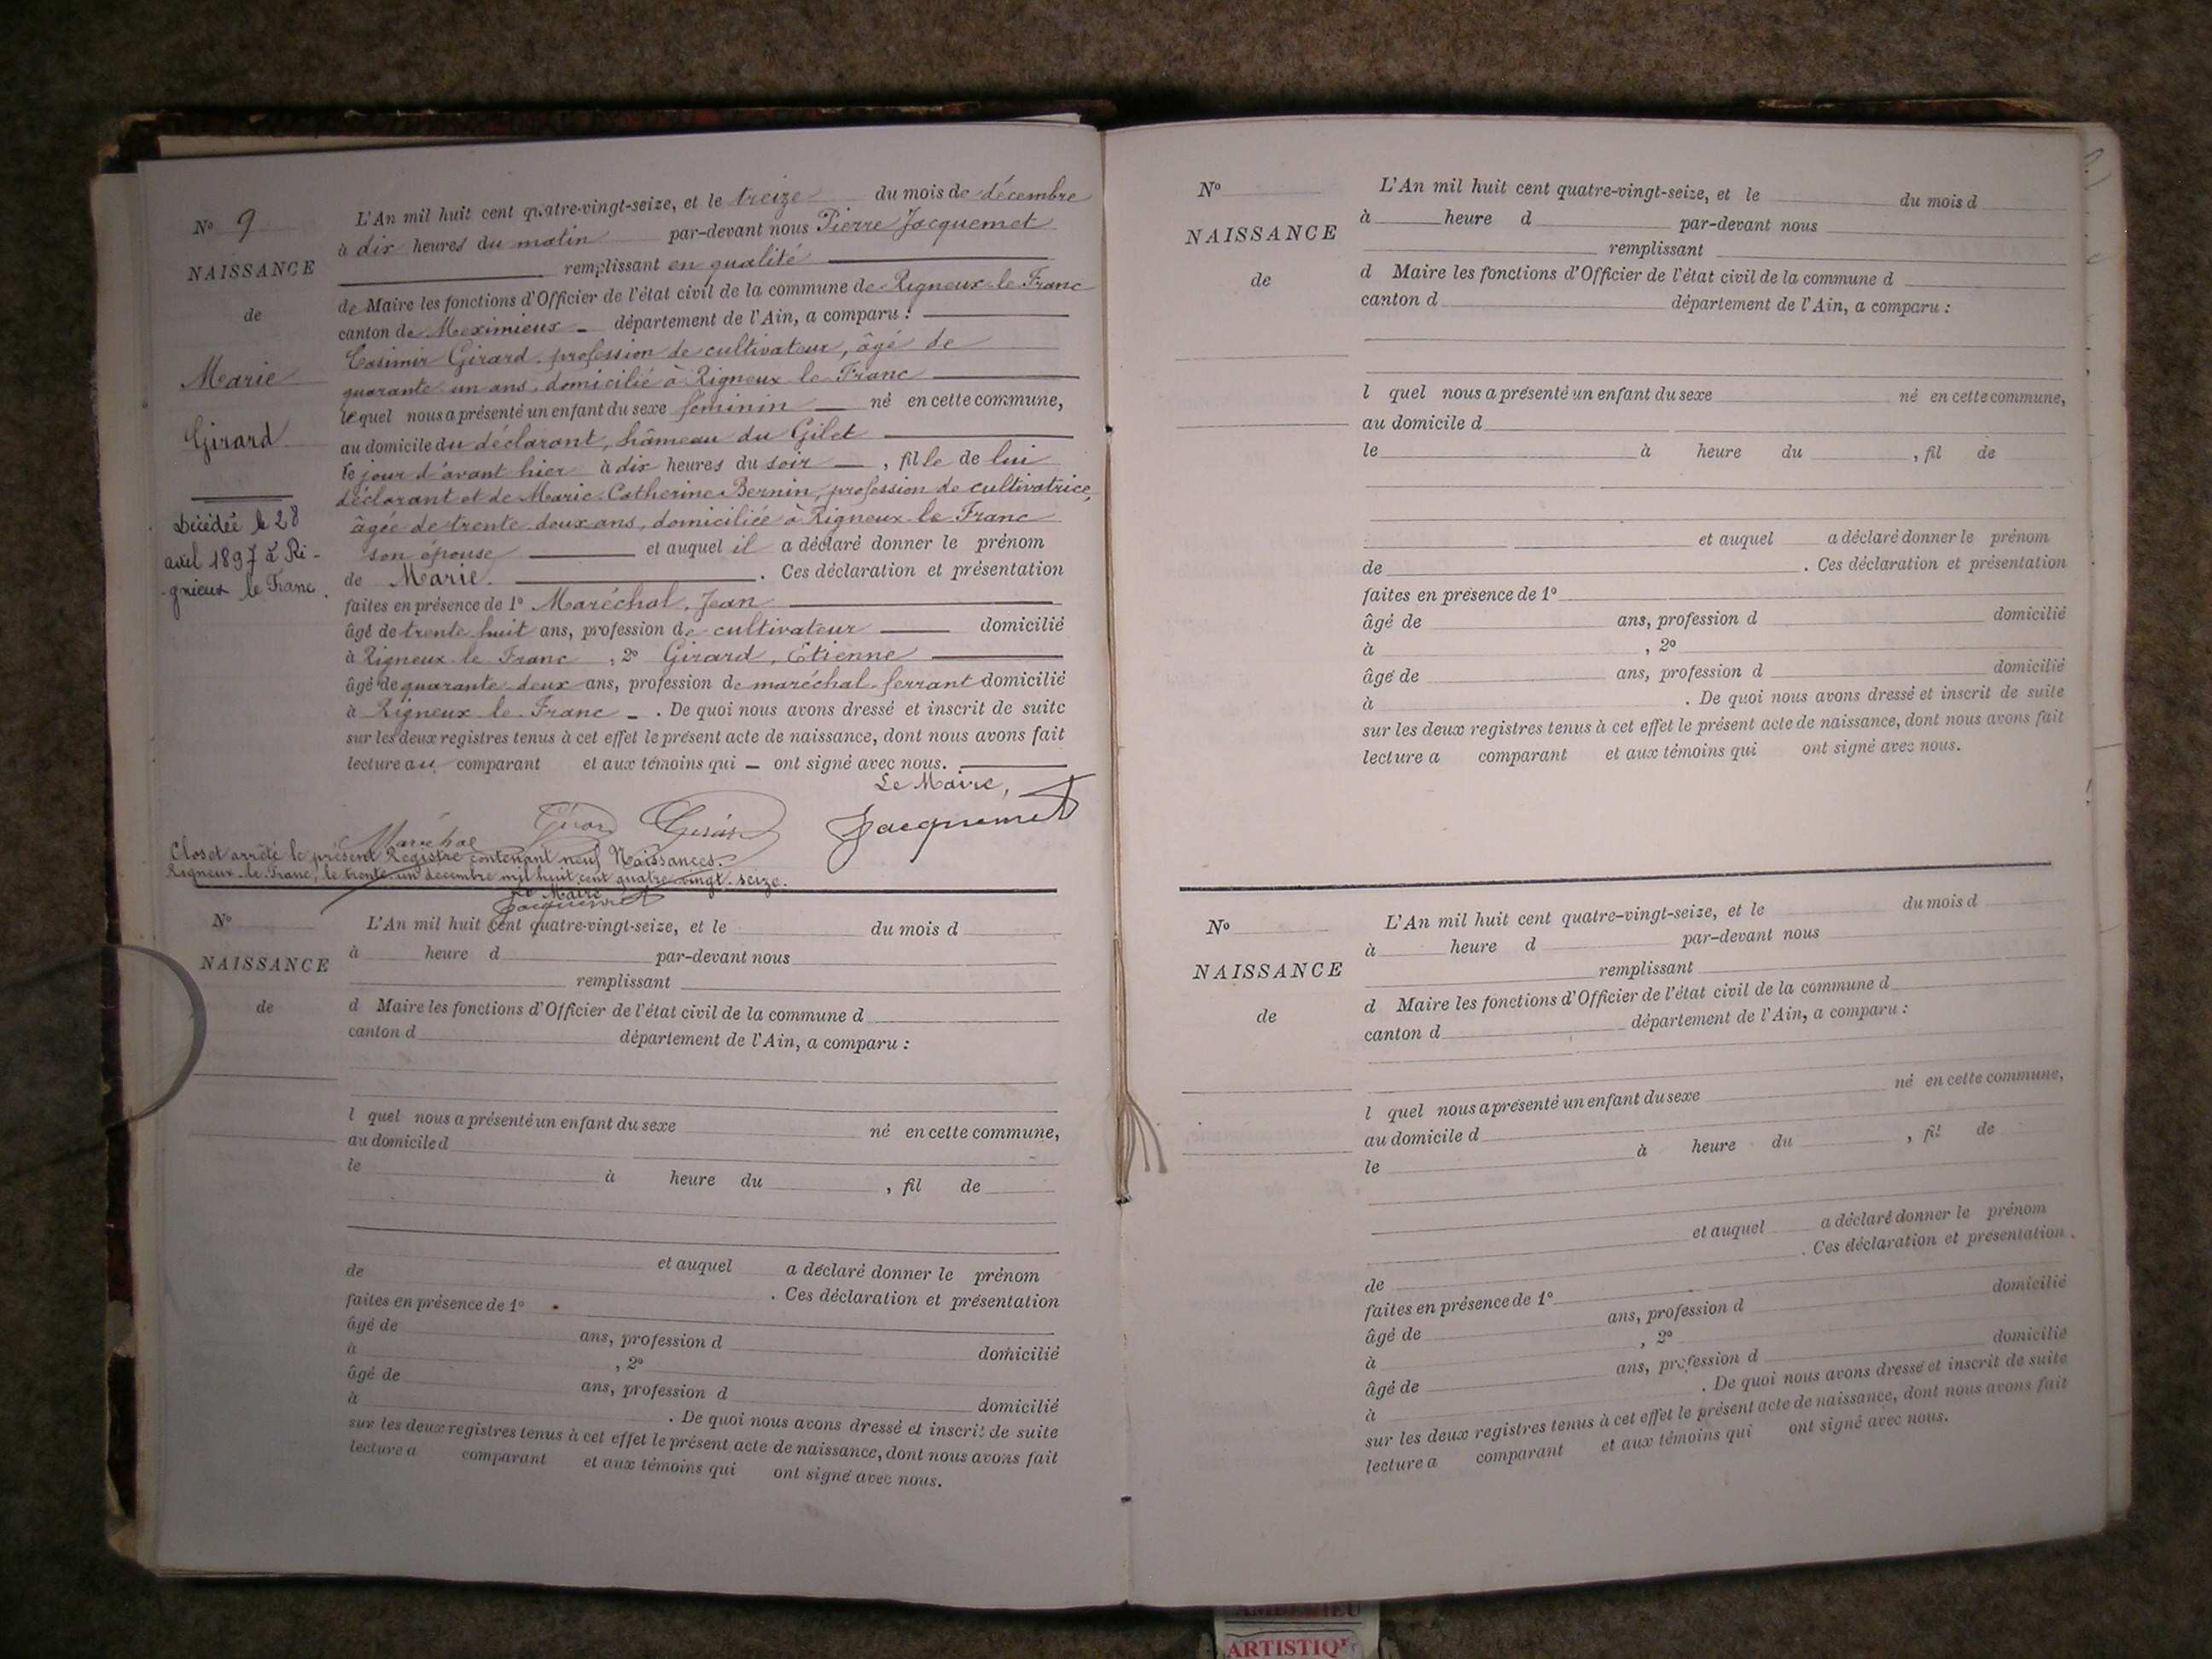 No 9
NAISSANCE
de
Marie
Girard
Décédée le 28
avril 1897 à Ri-
-gnieux le Franc.
L'An mil huit cent quatre-vingt-seize, et le treize du mois de décembre
à dix heures du matin par-devant nous Pierre Jacquemet
remplissant en qualité
de Maire les fonctions d'Officier de l'état civil de la commune de Rigneux-le-Franc
canton de Meximieux département de l'Ain, a comparu :
Casimir Girard, profession de cultivateur, âgé de
quarante un ans, domicilié à Rigneux le Franc
lequel nous a présenté un enfant du sexe féminin né en cette commune,
au domicile du déclarant, hâmeau du Gilet
le jour d'avant hier à dix heures du soir, fille de lui
déclarant et de Marie-Catherine Bernin, profession de cultivatrice,
âgée de trente deux ans, domiciliée à Rigneux le Franc
son épouse et auquel il a déclaré donner le prénom
de Marie. Ces déclaration et présentation
faites en présence de 1º Maréchal, Jean
âgé de trente huit ans, profession de cultivateur domicilié
à Rigneux le Franc, 2º Girard, Etienne
âgé de quarante deux ans, profession de maréchal-ferrant domicilié
à Rigneux le Franc. De quoi nous avons dressé et inscrit de suite
sur les deux registres tenus à cet effet le présent acte de naissance, dont nous avons fait
lecture au comparant et aux témoins qui ont signé avec nous.
Le Maire,
Maréchal Girard Girard Jacquemet
Clos et arrêté le présent Registre contenant neuf Naissances.
Rigneux-le-Franc, le trente-un décembre mil huit cent quatre-vingt-seize.
Le Maire
Jacquemet
No
NAISSANCE
de
L'An mil huit cent quatre-vingt-seize, et le du mois d
à heure d par-devant nous
remplissant
d Maire les fonctions d'Officier de l'état civil de la commune d
canton d département de l'Ain, a comparu :
l quel nous a présenté un enfant du sexe né en cette commune,
au domicile d
le à heure du , fil de
et auquel a déclaré donner le prénom
de . Ces déclaration et présentation
faites en présence de 1º
âgé de ans, profession d domicilié
à , 2º
âgé de ans, profession d domicilié
à . De quoi nous avons dressé et inscrit de suite
sur les deux registres tenus à cet effet le présent acte de naissance, dont nous avons fait
lecture a comparant et aux témoins qui ont signé avec nous.
No
NAISSANCE
de
L'An mil huit cent quatre-vingt-seize, et le du mois d
à heure d par-devant nous
remplissant
d Maire les fonctions d'Officier de l'état civil de la commune d
canton d département de l'Ain, a comparu :
l quel nous a présenté un enfant du sexe né en cette commune,
au domicile d
le à heure du , fil de
et auquel a déclaré donner le prénom
de . Ces déclaration et présentation
faites en présence de 1º
âgé de ans, profession d domicilié
à , 2º
âgé de ans, profession d domicilié
à . De quoi nous avons dressé et inscrit de suite
sur les deux registres tenus à cet effet le présent acte de naissance, dont nous avons fait
lecture a comparant et aux témoins qui ont signé avec nous.
No
NAISSANCE
de
L'An mil huit cent quatre-vingt-seize, et le du mois d
à heure d par-devant nous
remplissant
d Maire les fonctions d'Officier de l'état civil de la commune d
canton d département de l'Ain, a comparu :
l quel nous a présenté un enfant du sexe né en cette commune,
au domicile d
le à heure du , fil de
et auquel a déclaré donner le prénom
de . Ces déclaration et présentation
faites en présence de 1º
âgé de ans, profession d domicilié
à , 2º
âgé de ans, profession d domicilié
à . De quoi nous avons dressé et inscrit de suite
sur les deux registres tenus à cet effet le présent acte de naissance, dont nous avons fait
lecture a comparant et aux témoins qui ont signé avec nous.
ARTISTIQ